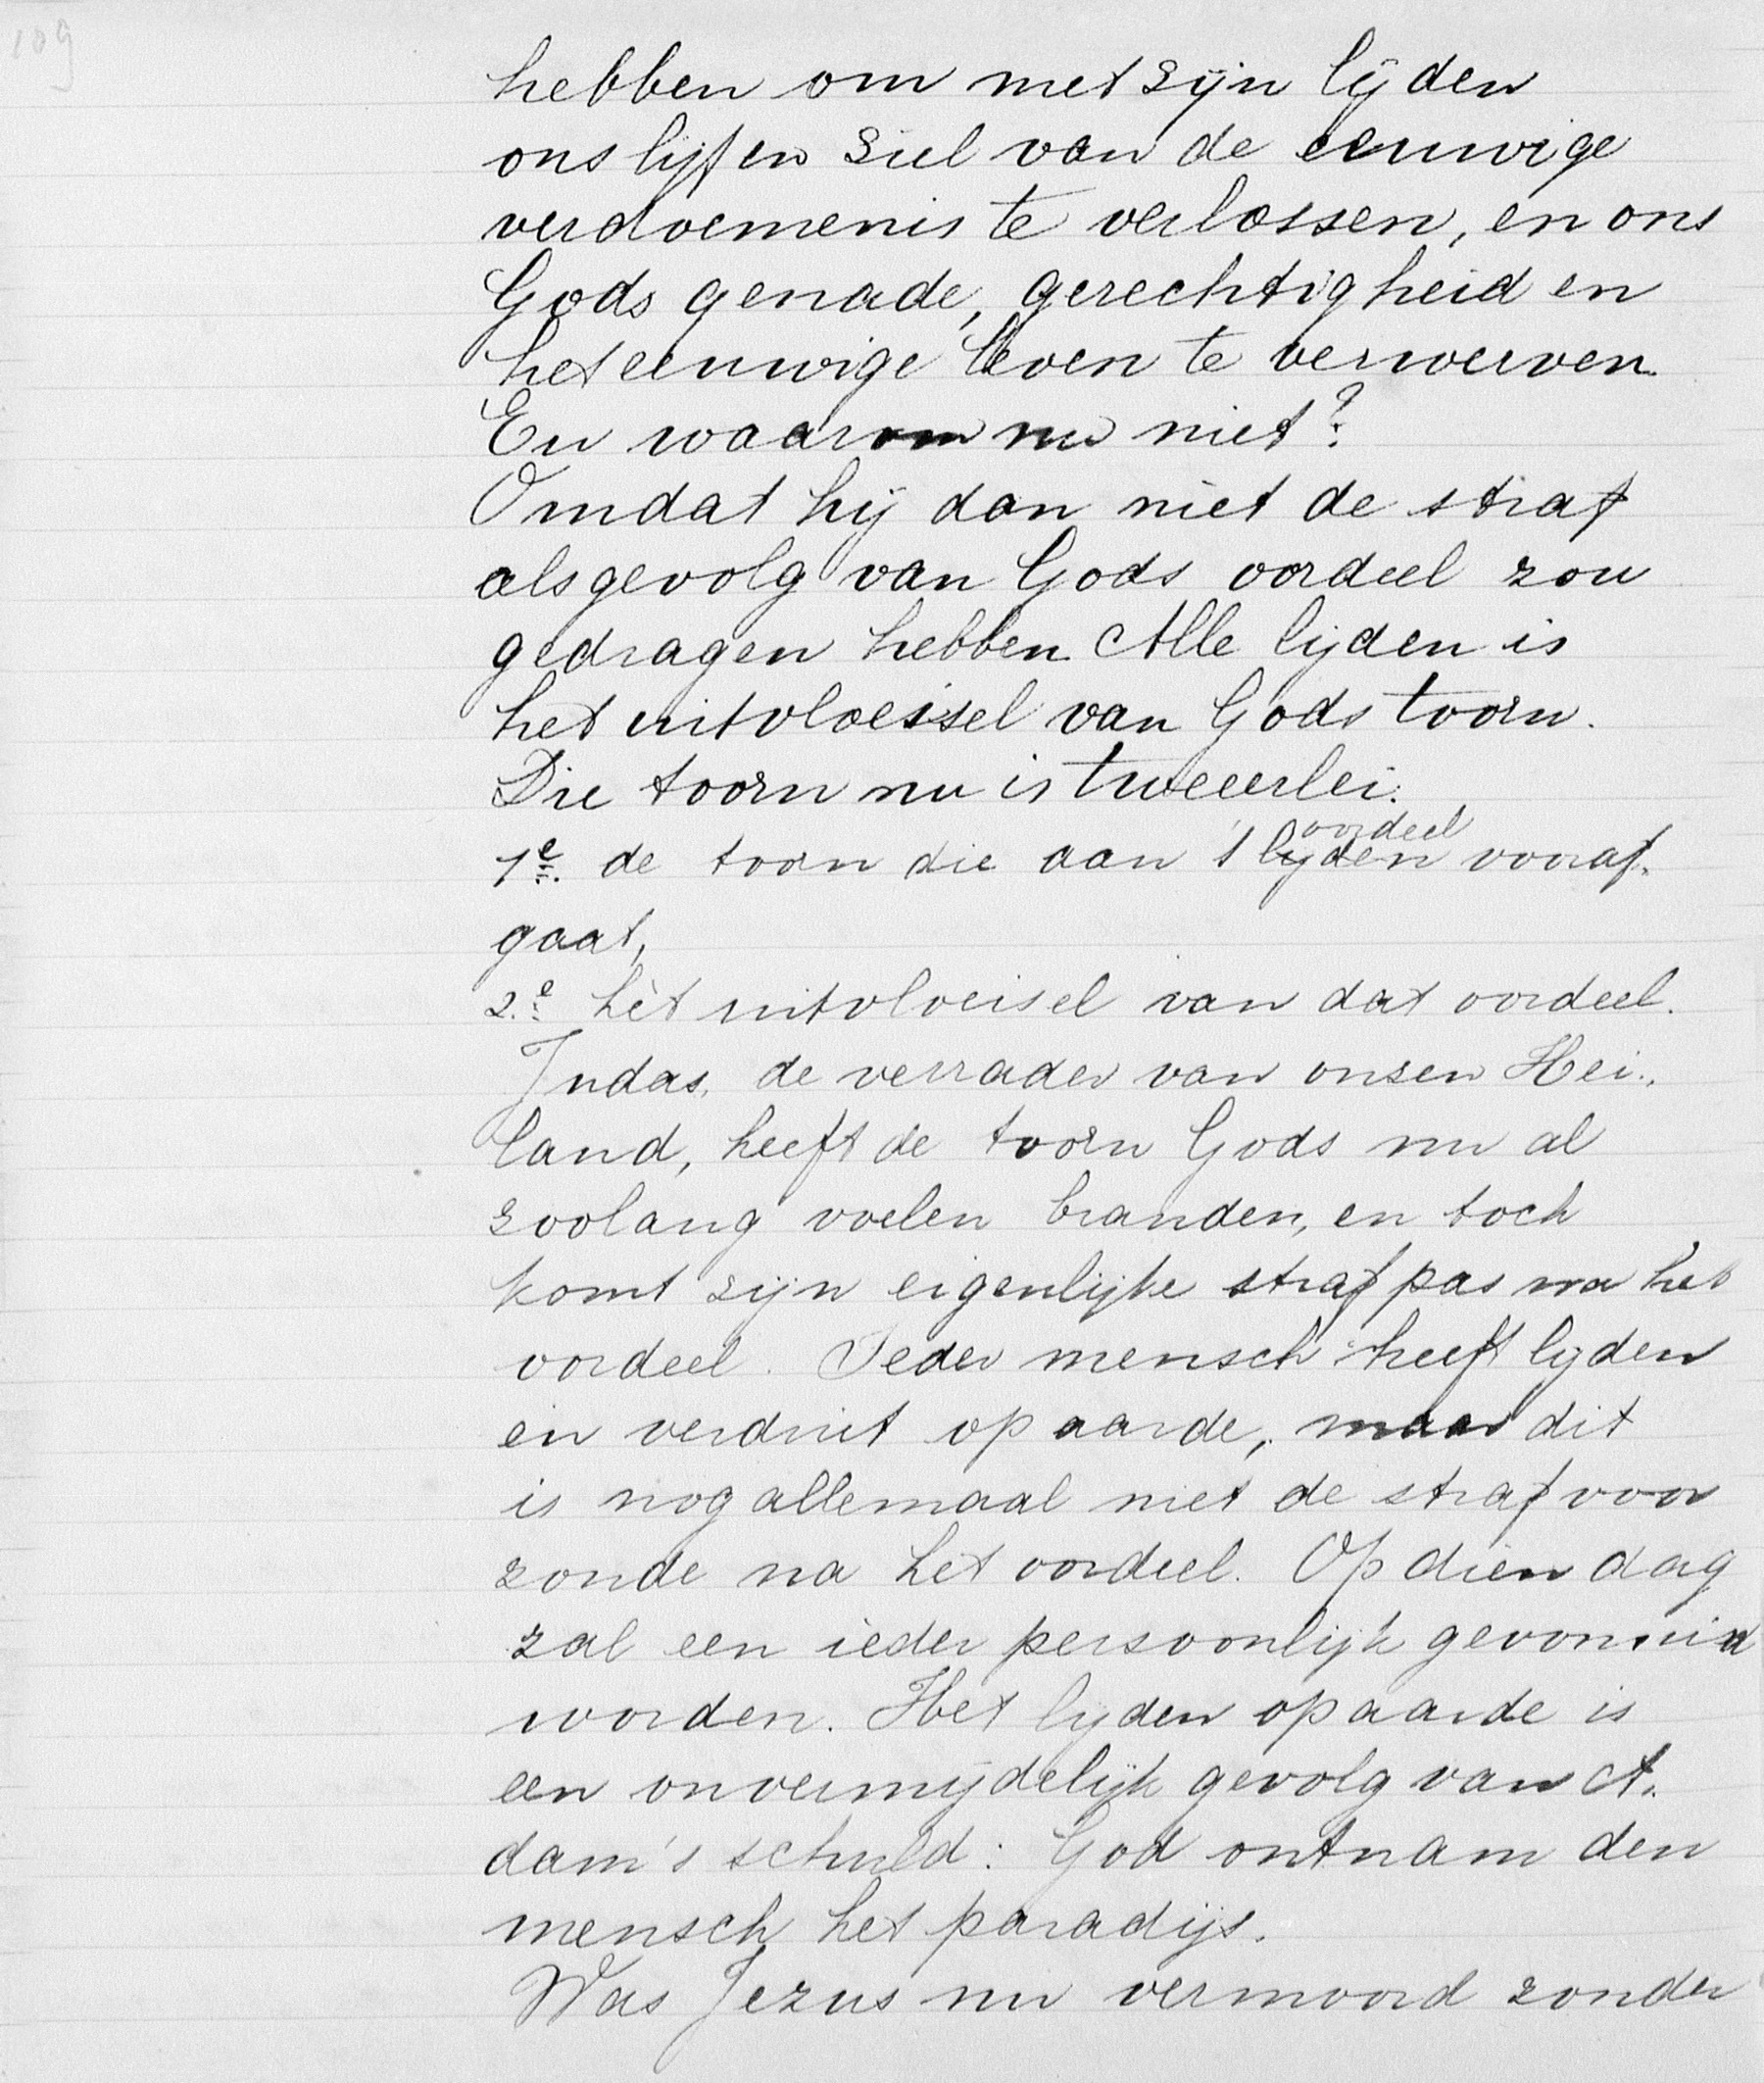 109
hebben om met zijn lijden
ons lijf en ziel van de eeuwige
verdoemenis te verlossen, en ons
Gods genade, gerechtigheid en
het eeuwige leven te verwerven.
En waarom nu niet?
Omdat hij dan niet de straf
als gevolg van Gods oordeel zou
gedragen hebben. Alle lijden is
het uitvloeisel van Gods toorn.
Die toorn nu is tweeerlei:
oordeel
1e. de toorn die aan 't lijden vooraf-
gaat,
2e. hèt uitvloeisel van dat oordeel.
Judas, de verrader van onzen Hei-
land, heeft de toorn Gods nu al
zoolang voelen branden, en toch
komt zijn eigenlijke straf pas na het
oordeel. Ieder mensch heeft lijden
en verdriet op aarde, maar dit
is nog allemaal niet de straf voor
zonde na het oordeel. Op dien dag
zal een ieder persoonlijk gevonnisd
worden. Het lijden op aarde is
een onvermijdelijk gevolg van A-
dam's schuld: God ontnam den
mensch het paradijs.
Was Jezus nu vermoord zonder